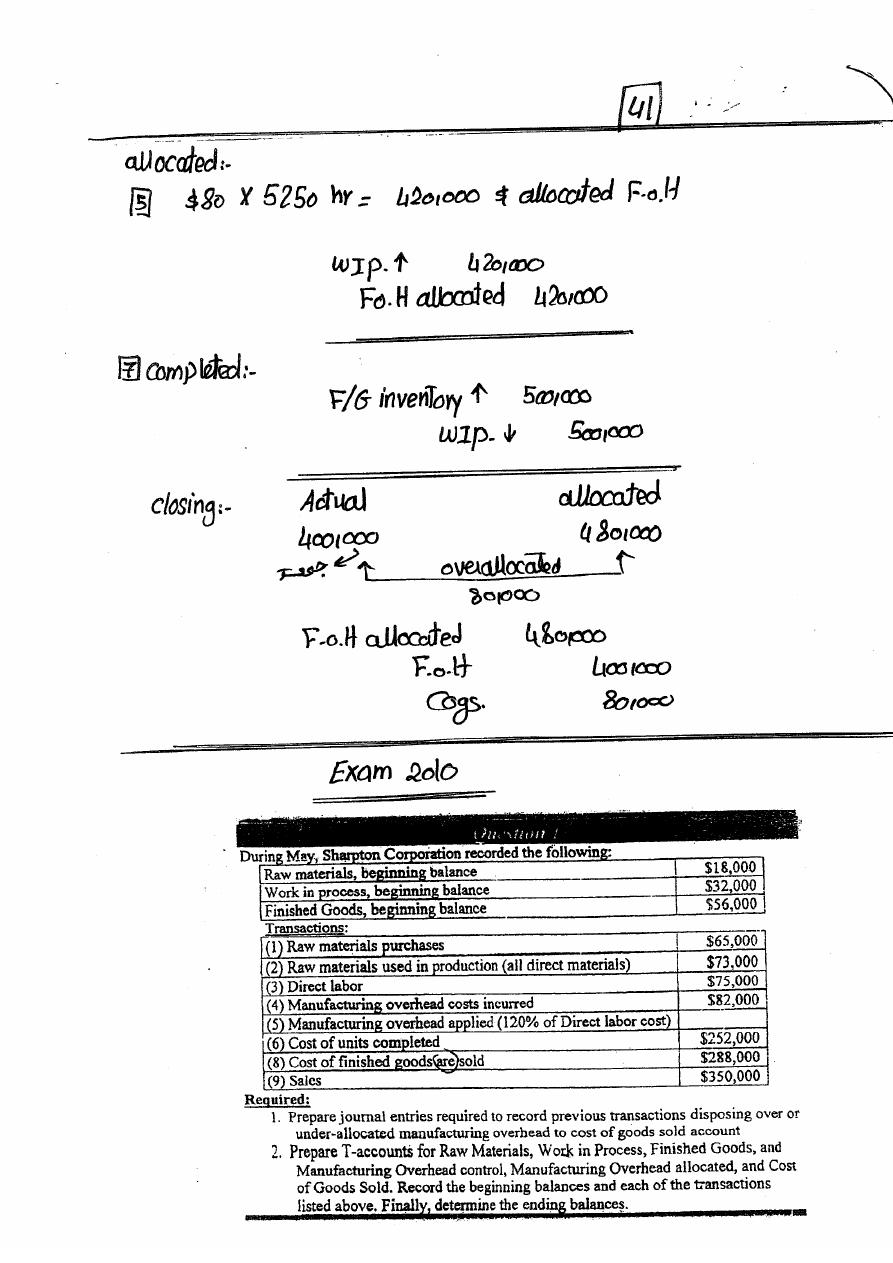 41
allocated:-
5 $80 X 5250 hr = 420,000 $ allocated F.o.H
WIP. ↑ 420,000
F.o.H allocated 420,000
7 Completed:-
F/G inventory ↑ 500,000
WIP. ↓ 500,000
closing:- Actual allocated
400,000 480,000
overallocated
80,000
F.o.H allocated 480,000
F.o.H 400,000
Cogs. 80,000
Exam 2010
Question 1
During May, Sharpton Corporation recorded the following:
Raw materials, beginning balance $18,000
Work in process, beginning balance $32,000
Finished Goods, beginning balance $56,000
Transactions:
(1) Raw materials purchases $65,000
(2) Raw materials used in production (all direct materials) $73,000
(3) Direct labor $75,000
(4) Manufacturing overhead costs incurred $82,000
(5) Manufacturing overhead applied (120% of Direct labor cost)
(6) Cost of units completed $252,000
(8) Cost of finished goods are sold $288,000
(9) Sales $350,000
Required:
1. Prepare journal entries required to record previous transactions disposing over or
under-allocated manufacturing overhead to cost of goods sold account
2. Prepare T-accounts for Raw Materials, Work in Process, Finished Goods, and
Manufacturing Overhead control, Manufacturing Overhead allocated, and Cost
of Goods Sold. Record the beginning balances and each of the transactions
listed above. Finally, determine the ending balances.